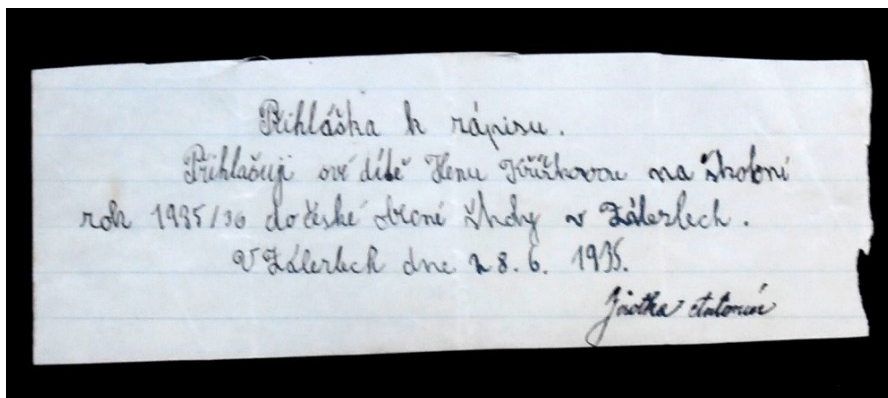 Přihláška k zápisu.
Přihlašuji své dítě Helenu Křížkovou na školní
rok 1935/36 do české obecné školy v Zálezlech.
V Zálezlech dne 28. 6. 1935.
Antonín